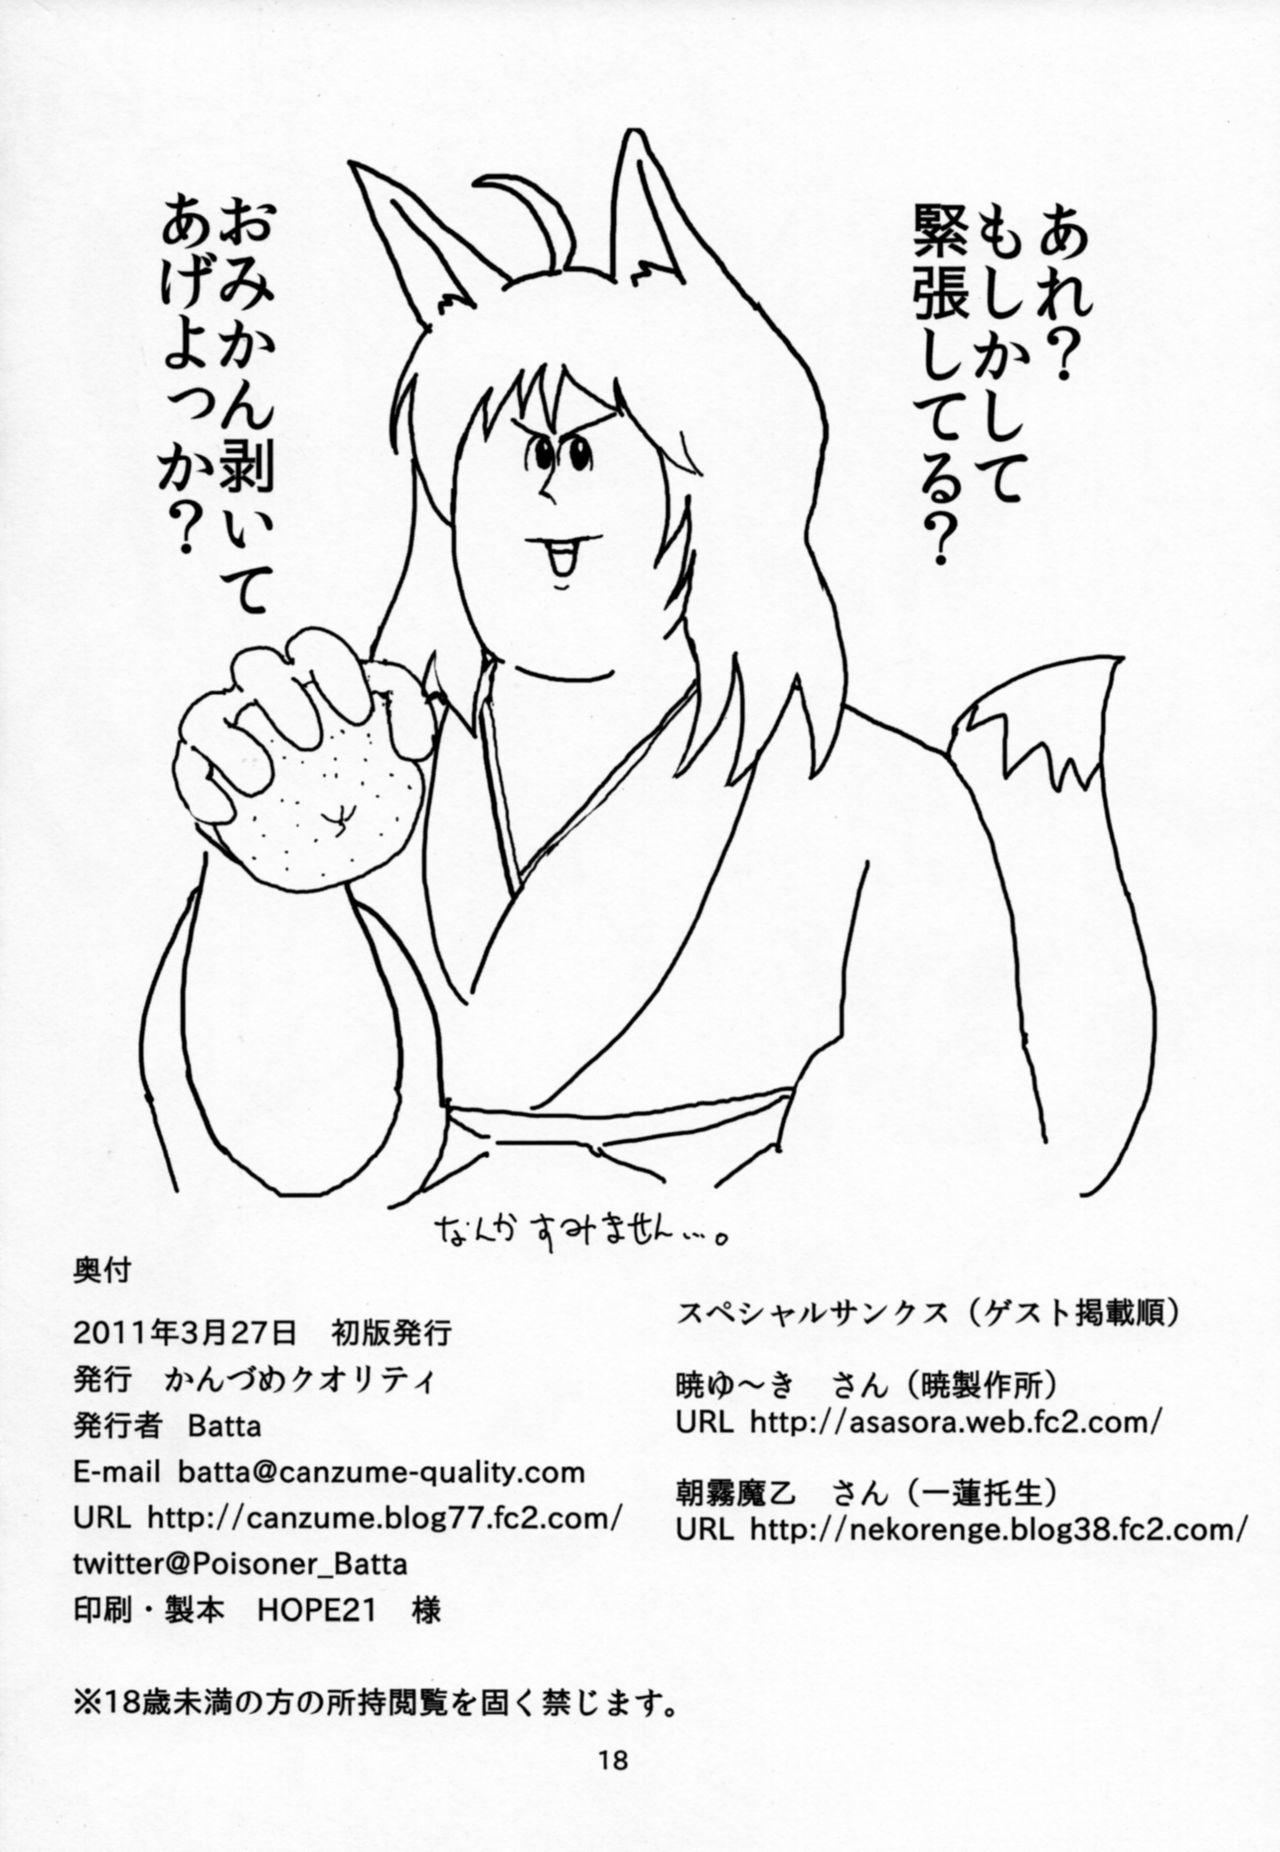 あれ?
もしかして
緊張してる?
おみかん剥いて
あげよっか?
なんかすみません…。
奥付
2011年3月27日 初版発行
発行 かんづめクオリティ
発行者 Batta
E-mail batta@canzume-quality.com
URL http://canzume.blog77.fc2.com/
twitter@Poisoner_Batta
印刷・製本 HOPE21 様
※18歳未満の方の所持閲覧を固く禁じます。
スペシャルサンクス（ゲスト掲載順）
暁ゆ～き さん（暁製作所）
URL http://asasora.web.fc2.com/
朝霧魔乙 さん（一蓮托生）
URL http://nekorenge.blog38.fc2.com/
18